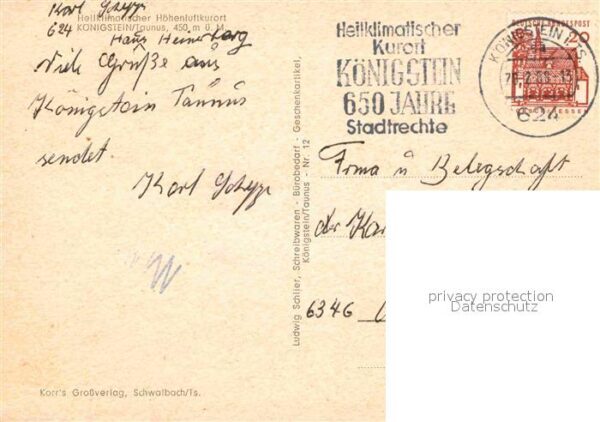 Karl
Heilklimatischer Höhenluftkurort
624 KÖNIGSTEIN/Taunus, 450 m ü. M.
Haus Hainerberg
Viele Grüße aus
Königstein Taunus
sendet
Karl
Korr's Großverlag, Schwalbach/Ts.
Ludwig Schlier, Schreibwaren - Bürobedarf - Geschenkartikel,
Königstein/Taunus - Nr. 12
Heilklimatischer
Kurort
KÖNIGSTEIN
650 JAHRE
Stadtrechte
KÖNIGSTEIN, TS
624
DEUTSCHE BUNDESPOST
20
Firma u Belegschaft
der
6346
privacy protection
Datenschutz